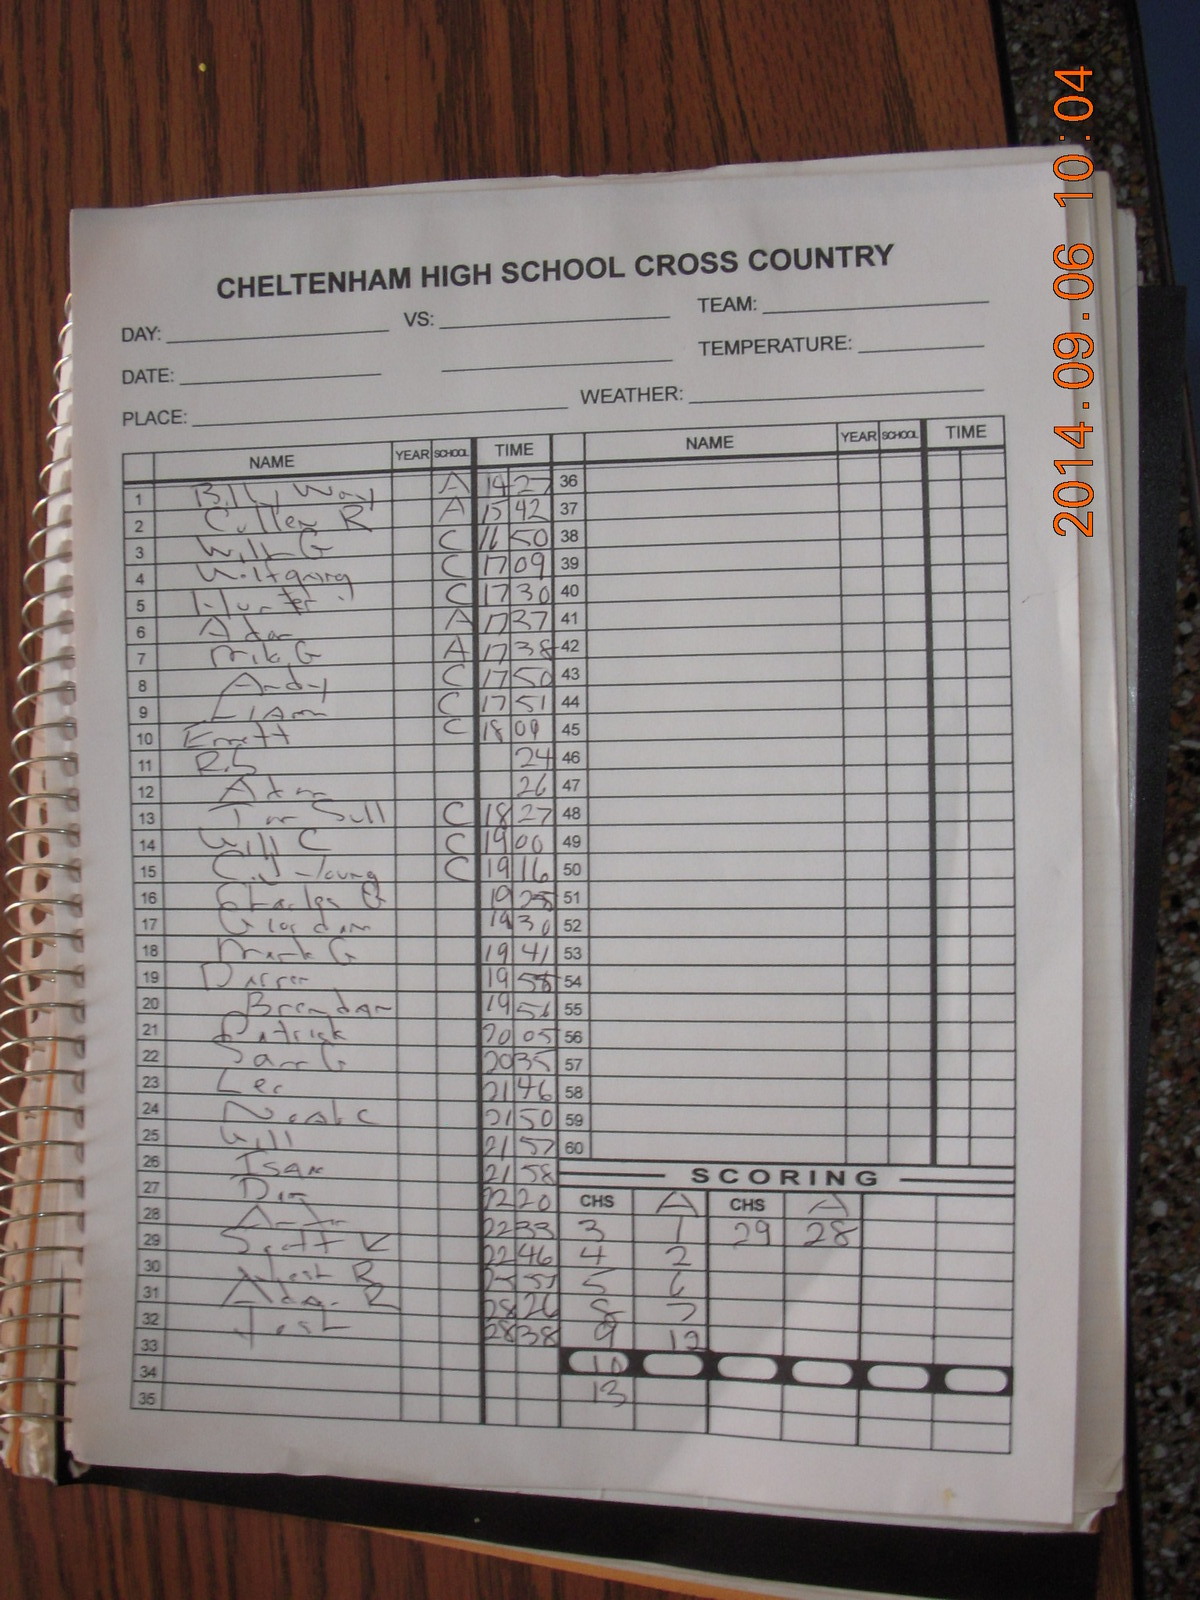 CHELTENHAM HIGH SCHOOL CROSS COUNTRY
DAY: VS: TEAM:
DATE: TEMPERATURE:
PLACE: WEATHER:
NAME YEAR SCHOOL TIME NAME YEAR SCHOOL TIME
1 Billy Way A 14 27 36
2 Cullen R A 15 42 37
3 Will G C 16 50 38
4 Wolfgang C 17 09 39
5 Hunter C 17 30 40
6 A 17 37 41
7 Mik G A 17 38 42
8 Andy C 17 50 43
9 Liam C 17 51 44
10 Emmett C 18 09 45
11 24 46
12 Adam 26 47
13 Tim Sull C 18 27 48
14 Will C C 19 00 49
15 C.J. Young C 19 16 50
16 Charles G 19 51
17 19 30 52
18 Mark G 19 41 53
19 Darren 19 54
20 Brendan 19 56 55
21 Patrick 20 05 56
22 Sam G 20 35 57
23 Lee 21 46 58
24 Noah C 21 50 59
25 Will 21 57 60
26 Isan 21 58
27 22 20
28 22 33
29 Scott K 22 46
30 Josh R
31 Adam R 28 26
32 Josh 28 38
33
34
35
SCORING
CHS A CHS A
3 1 29 28
4 2
5 6
8 7
9 12
10
13
2014.09.06 10:04